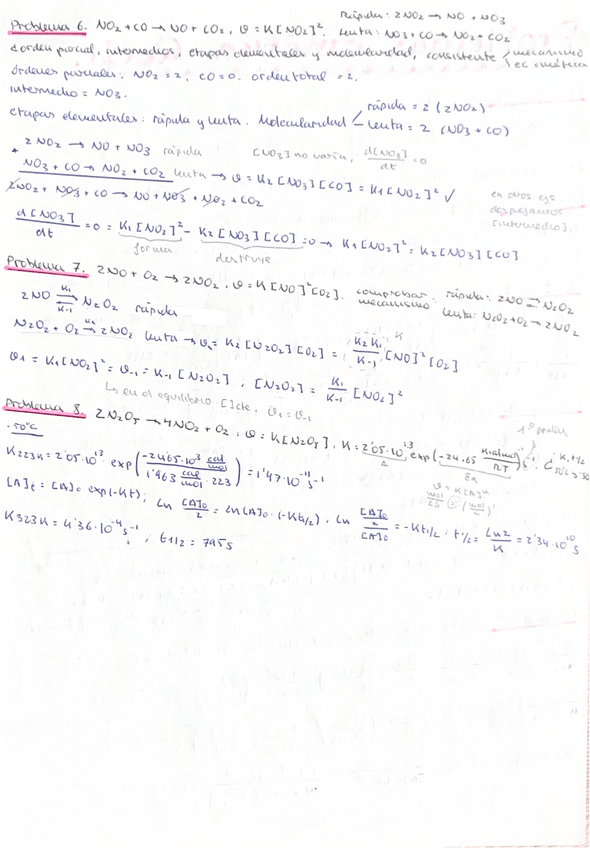 Problema 6. NO2 + CO → NO + CO2, ϑ = K[NO2]². Rápida: 2NO2 → NO + NO3
Lenta: NO3 + CO → NO2 + CO2
¿orden parcial, intermedios, etapas elementales y molecularidad, consistente mecanismo
ec cinética
órdenes parciales: NO2 = 2, CO = 0. orden total = 2.
intermedio = NO3.
etapas elementales: rápida y lenta. Molecularidad rápida = 2 (2NO2)
lenta = 2 (NO3 + CO)
2NO2 → NO + NO3 rápida [NO3] no varía, d[NO3]/dt = 0
+ NO3 + CO → NO2 + CO2 lenta → ϑ = K2[NO3][CO] = K1[NO2]² ✓
2NO2 + NO3 + CO → NO + NO3 + NO2 + CO2
en otros ejs despejamos [intermedio].
d[NO3]/dt = 0 = K1[NO2]² - K2[NO3][CO] = 0 → K1[NO2]² = K2[NO3][CO]
forma destruye
Problema 7. 2NO + O2 → 2NO2, ϑ = K[NO]²[O2]. comprobar mecanismo rápida: 2NO ⇌ N2O2
lenta: N2O2 + O2 → 2NO2
2NO K1 ⇌ K-1 N2O2 rápida
N2O2 + O2 K2 → 2NO2 lenta → ϑ2 = K2[N2O2][O2] = K2K1/K-1 [NO]²[O2]
ϑ1 = K1[NO2]² = ϑ-1 = K-1[N2O2]; [N2O2] = K1/K-1 [NO2]²
↳ en el equilibrio []cte, ϑ1 = ϑ-1
Problema 8. 2N2O5 → 4NO2 + O2, ϑ = K[N2O5], K = 2'05·10¹³ exp(-24'65 Kcal/mol / RT) s⁻¹. ¿K, t1/2
-50°C
A Ea
K223K = 2'05·10¹³ · exp(-24'65·10³ cal/mol / 1'963 cal/mol · 223) = 1'47·10⁻¹¹ s⁻¹
[A]t = [A]0 exp(-Kt); Ln [A]0/2 = Ln[A]0·(-Kt1/2), Ln [A]0/2 / [A]0 = -Kt1/2; t1/2 = Ln2/K = 2'34·10¹⁰ s
K323K = 4'36·10⁻⁴ s⁻¹; t1/2 = 795 s